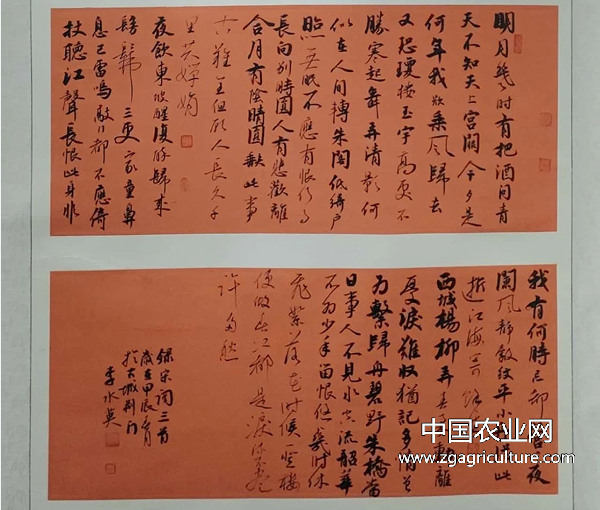 明月幾时有把酒问青
天不知天上宫闕今夕是
何年我欲乘风歸去
又恐瓊楼玉宇高不
勝寒起舞弄清影何
似在人间轉朱閣低綺户
照无眠不應有恨何事
長向别時圆人有悲歡離
合月有陰晴圆缺此事
古難全但願人長久千
里共嬋娟
夜飲東坡醒復醉歸来
髣髴三更家童鼻
息已雷鳴敲门都不應倚
杖聽江聲長恨此身非
我有何時忘却营营夜
闌风静縠纹平小舟從此
逝江海寄餘生
西城楊柳弄春柔動離
憂淚難收猶記多情曾
为繫歸舟碧野朱橋當
日事人不见水空流韶華
不为少年留恨悠悠幾时休
飛絮落花时候登楼
便做春江都是淚流不尽
许多愁
錄宋词三首
歲在甲辰月
於古城荆门
李水英
中国农业网
www.zgagriculture.com